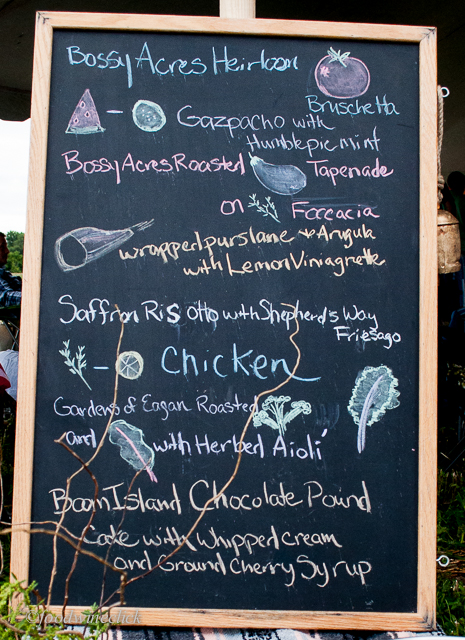 Bossy Acres Heirloom
Bruschetta
Gazpacho with
Humble pie mint
Bossy Acres Roasted Tapenade
on Foccacia
wrapped purslane + Arugula
with Lemon Viniagrette
Saffron Risotto with Shepherd's Way
Friesago
Chicken
Gardens of Eagan Roasted
and with Herbed Aioli
Boom Island Chocolate Pound
Cake with whipped cream
and Ground Cherry Syrup
© foodwineclick